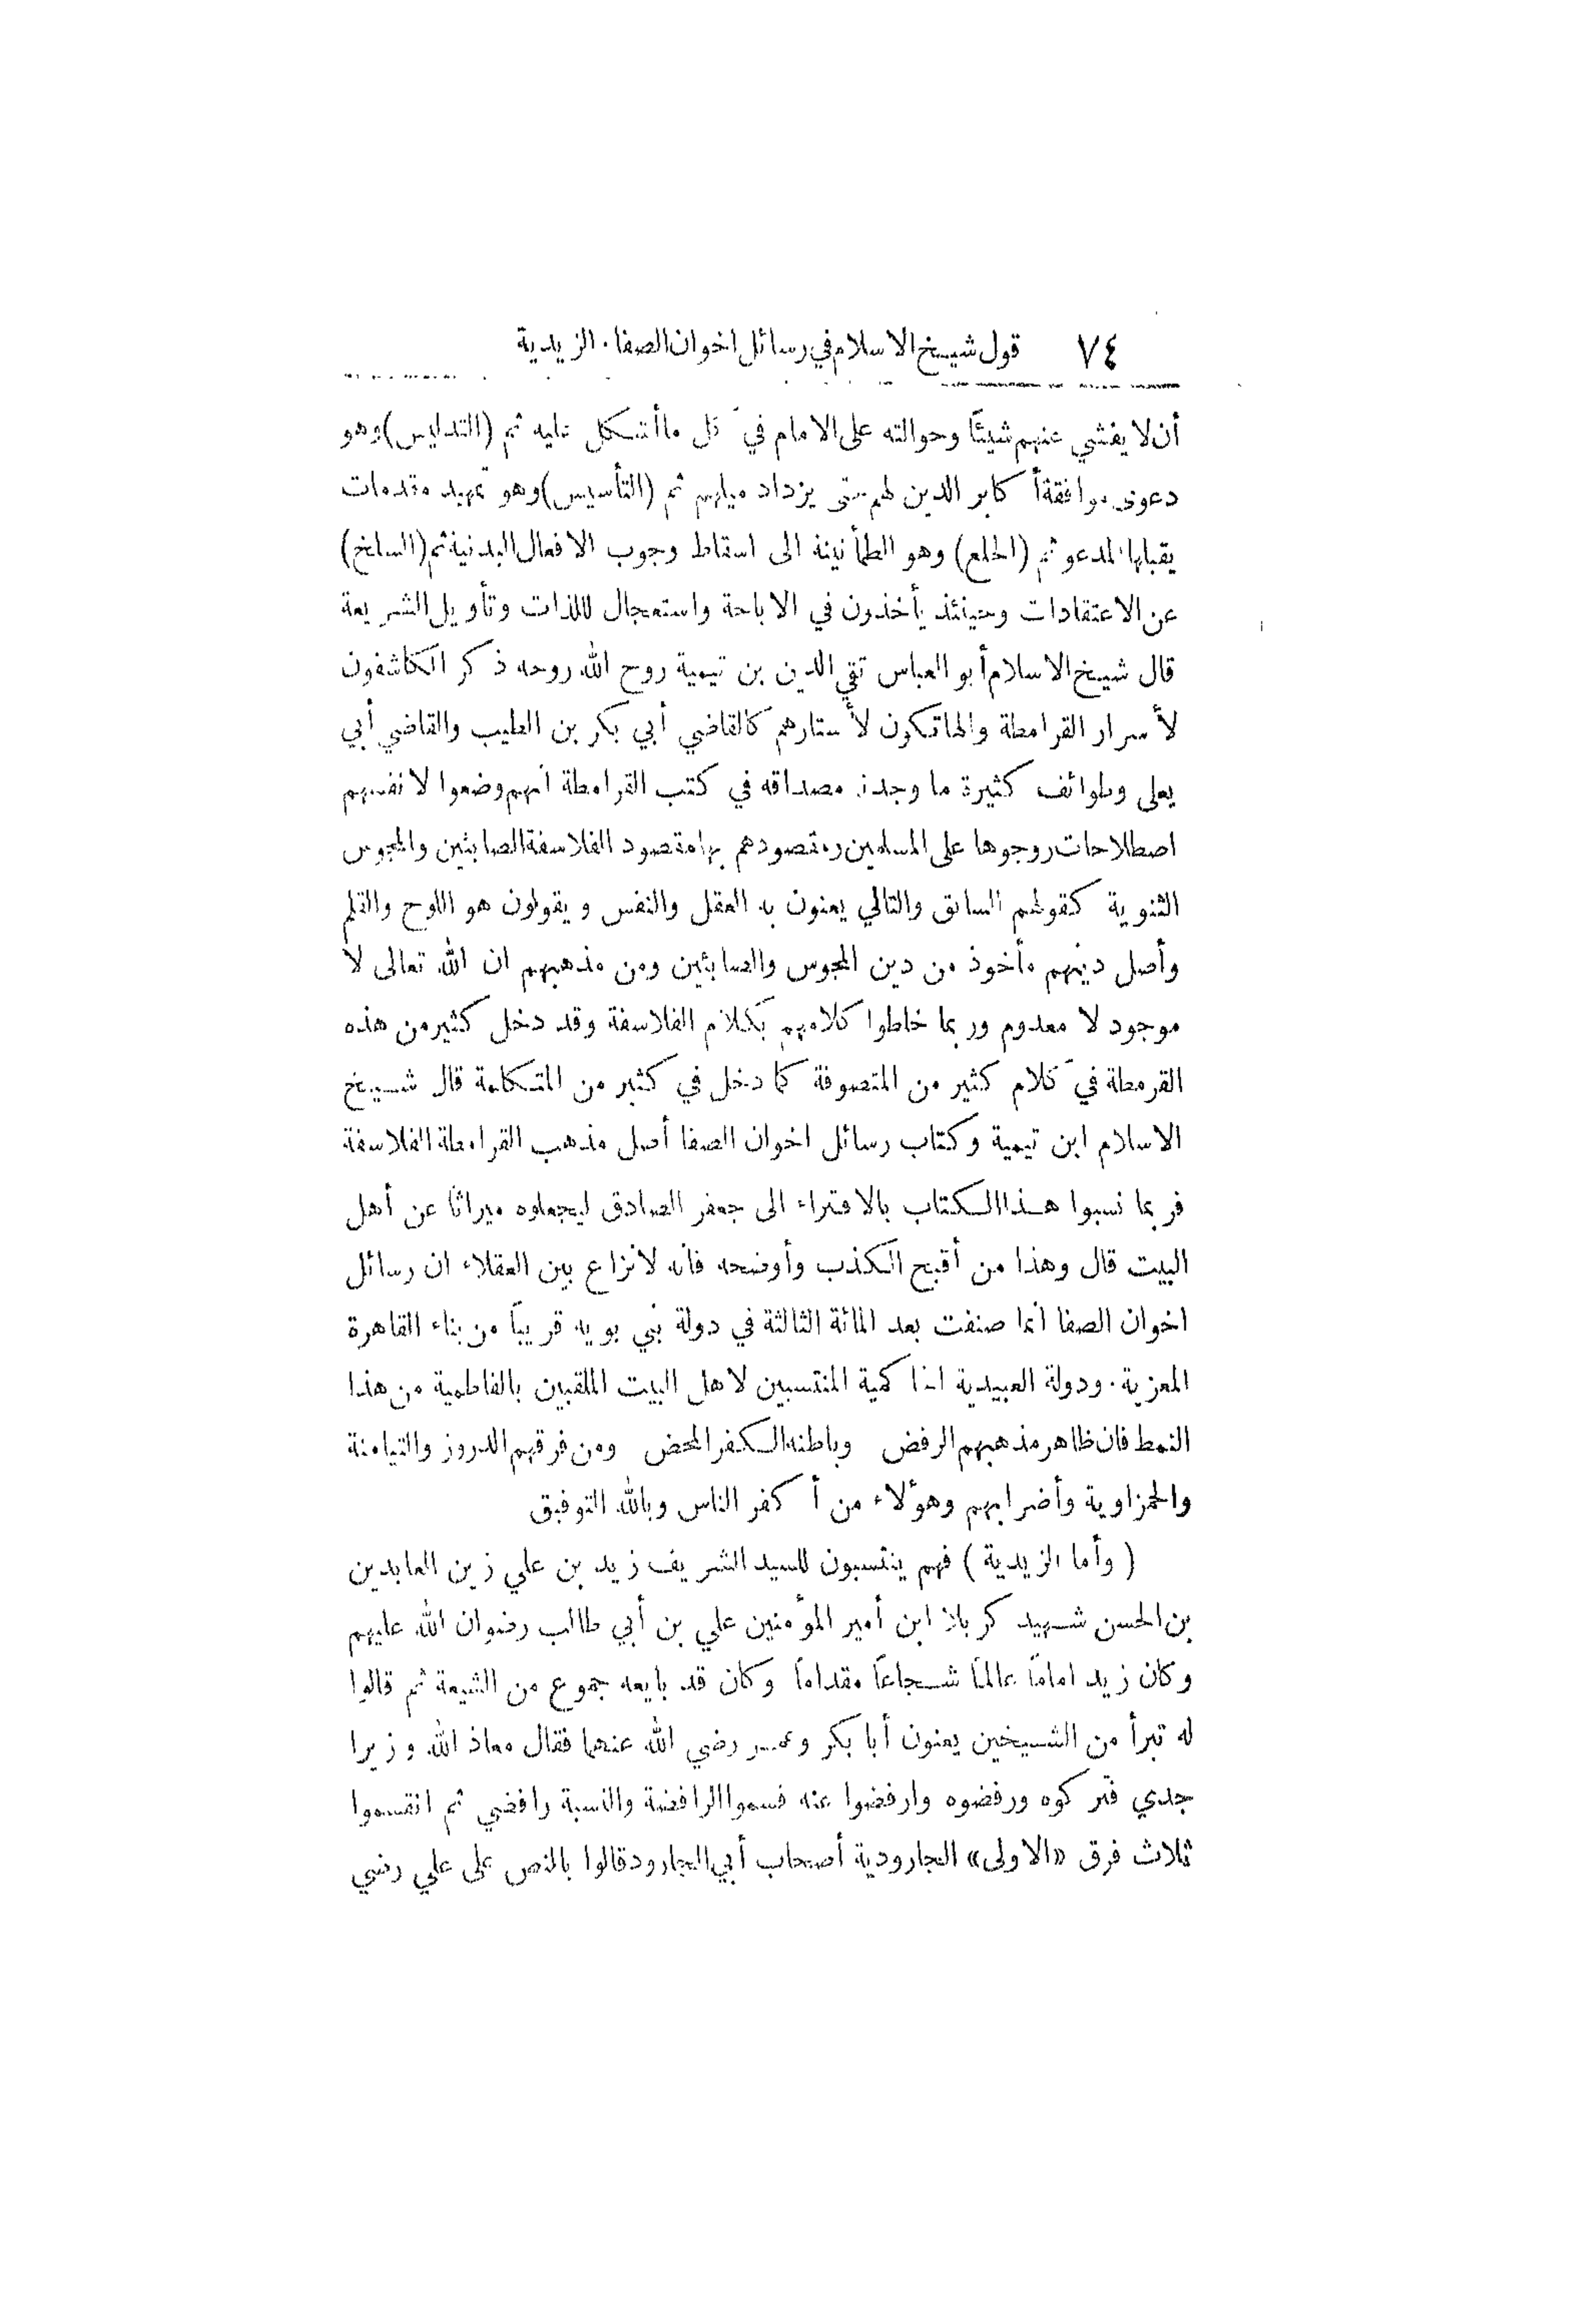 ٧٤ قول شيخ الاسلام في رسائل اخوان الصفا . الزيدية
أن لا يفشي عنهم شيئًا وحوالته على الامام في كل ما أشكل عليه ثم (التدليس) وهو
دعوى موافقة أكابر الدين لهم حتى يزداد ميلهم ثم (التأسيس) وهو تمهيد مقدمات
يقبلها المدعو ثم (الخلع) وهو الطمأنينة الى اسقاط وجوب الافعال البدنية ثم (السلخ)
عن الاعتقادات وحينئذ يأخذون في الاباحة واستعجال للذات وتأويل الشريعة
قال شيخ الاسلام أبو العباس تقي الدين بن تيمية روح الله روحه ذكر الكاشفون
لأسرار القرامطة والهاتكون لأستارهم كالقاضي أبي بكر بن الطيب والقاضي أبي
يعلى وطوائف كثيرة ما وجد مصداقه في كتب القرامطة انهم وضعوا لانفسهم
اصطلاحات روجوها على المسلمين ومقصودهم بها مقصود الفلاسفة الصابئين والمجوس
الثنوية كقولهم السابق والتالي يعنون به العقل والنفس ويقولون هو اللوح والقلم
وأصل دينهم مأخوذ من دين المجوس والصابئين ومن مذهبهم ان الله تعالى لا
موجود لا معدوم وربما خلطوا كلامهم بكلام الفلاسفة وقد دخل كثير من هذه
القرمطة في كلام كثير من المتصوفة كما دخل في كثير من المتكلمة قال شيخ
الاسلام ابن تيمية وكتاب رسائل اخوان الصفا أصل مذهب القرامطة الفلاسفة
فربما نسبوا هذا الكتاب بالافتراء الى جعفر الصادق ليجعلوه ميراثًا عن أهل
البيت قال وهذا من أقبح الكذب وأوضحه فانه لا نزاع بين العقلاء ان رسائل
اخوان الصفا انما صنفت بعد المائة الثالثة في دولة بني بويه قريبًا من بناء القاهرة
المعزية . ودولة العبيدية الحاكمية المنتسبين لاهل البيت الملقبين بالفاطمية من هذا
النمط فان ظاهر مذهبهم الرفض وباطنه الكفر المحض ومن فرقهم الدروز والتيامنة
والحمزاوية وأضرابهم وهؤلاء من أكفر الناس وبالله التوفيق
( وأما الزيدية ) فهم ينتسبون للسيد الشريف زيد بن علي زين العابدين
بن الحسن شهيد كربلا ابن أمير المؤمنين علي بن أبي طالب رضوان الله عليهم
وكان زيد امامًا عالمًا شجاعًا مقدامًا وكان قد بايعه جموع من الشيعة ثم قالوا
له تبرأ من الشيخين يعنون أبا بكر وعمر رضي الله عنهما فقال معاذ الله وزيرا
جدي فتركوه ورفضوه وارفضوا عنه فسموا الرافضة والنسبة رافضي ثم انقسموا
ثلاث فرق «الاولى» الجارودية أصحاب أبي الجارود قالوا بالنص على علي رضي